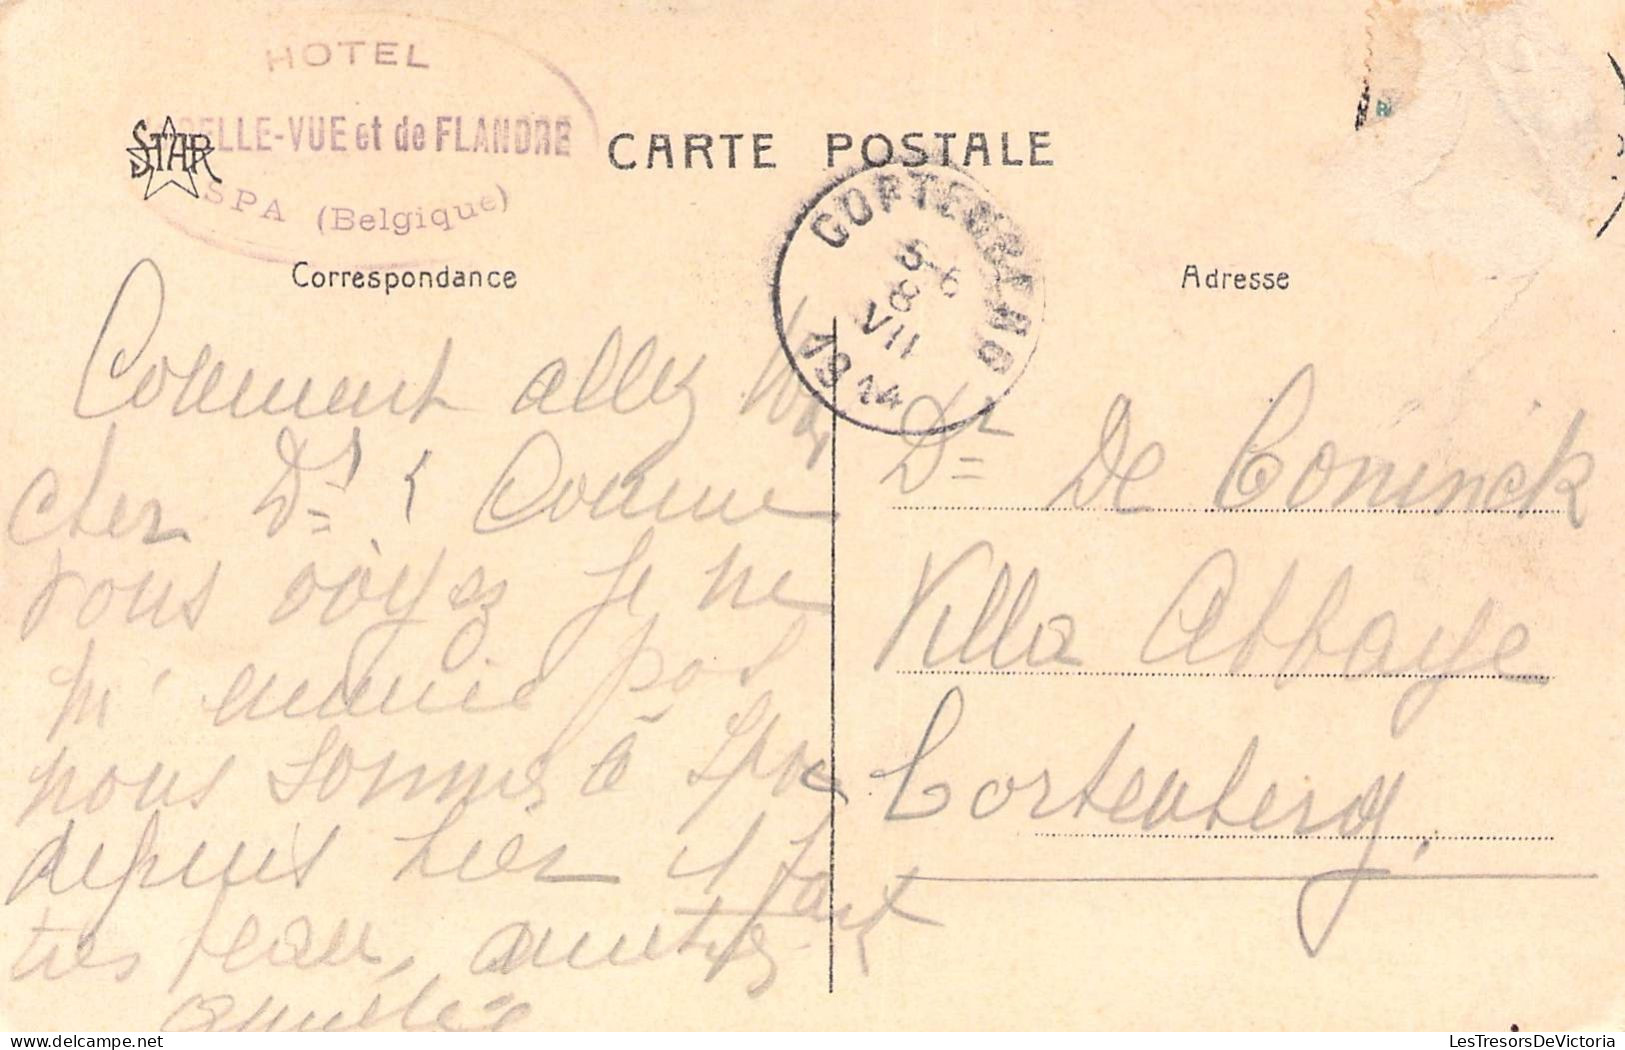 HOTEL
BELLE-VUE et de FLANDRE
SPA (Belgique)
STAR
CARTE POSTALE
CORTENBERG
5-6
8
VII
1914
Correspondance
Adresse
Comment allez vous
cher Dr ? Comme
vous voyez je ne
m'ennuie pas
nous sommes à Spa
depuis hier il fait
très beau, amitiés
Amélie
Dr De Coninck
Villa Abbaye
Cortenberg.
LesTresorsDeVictoria.com